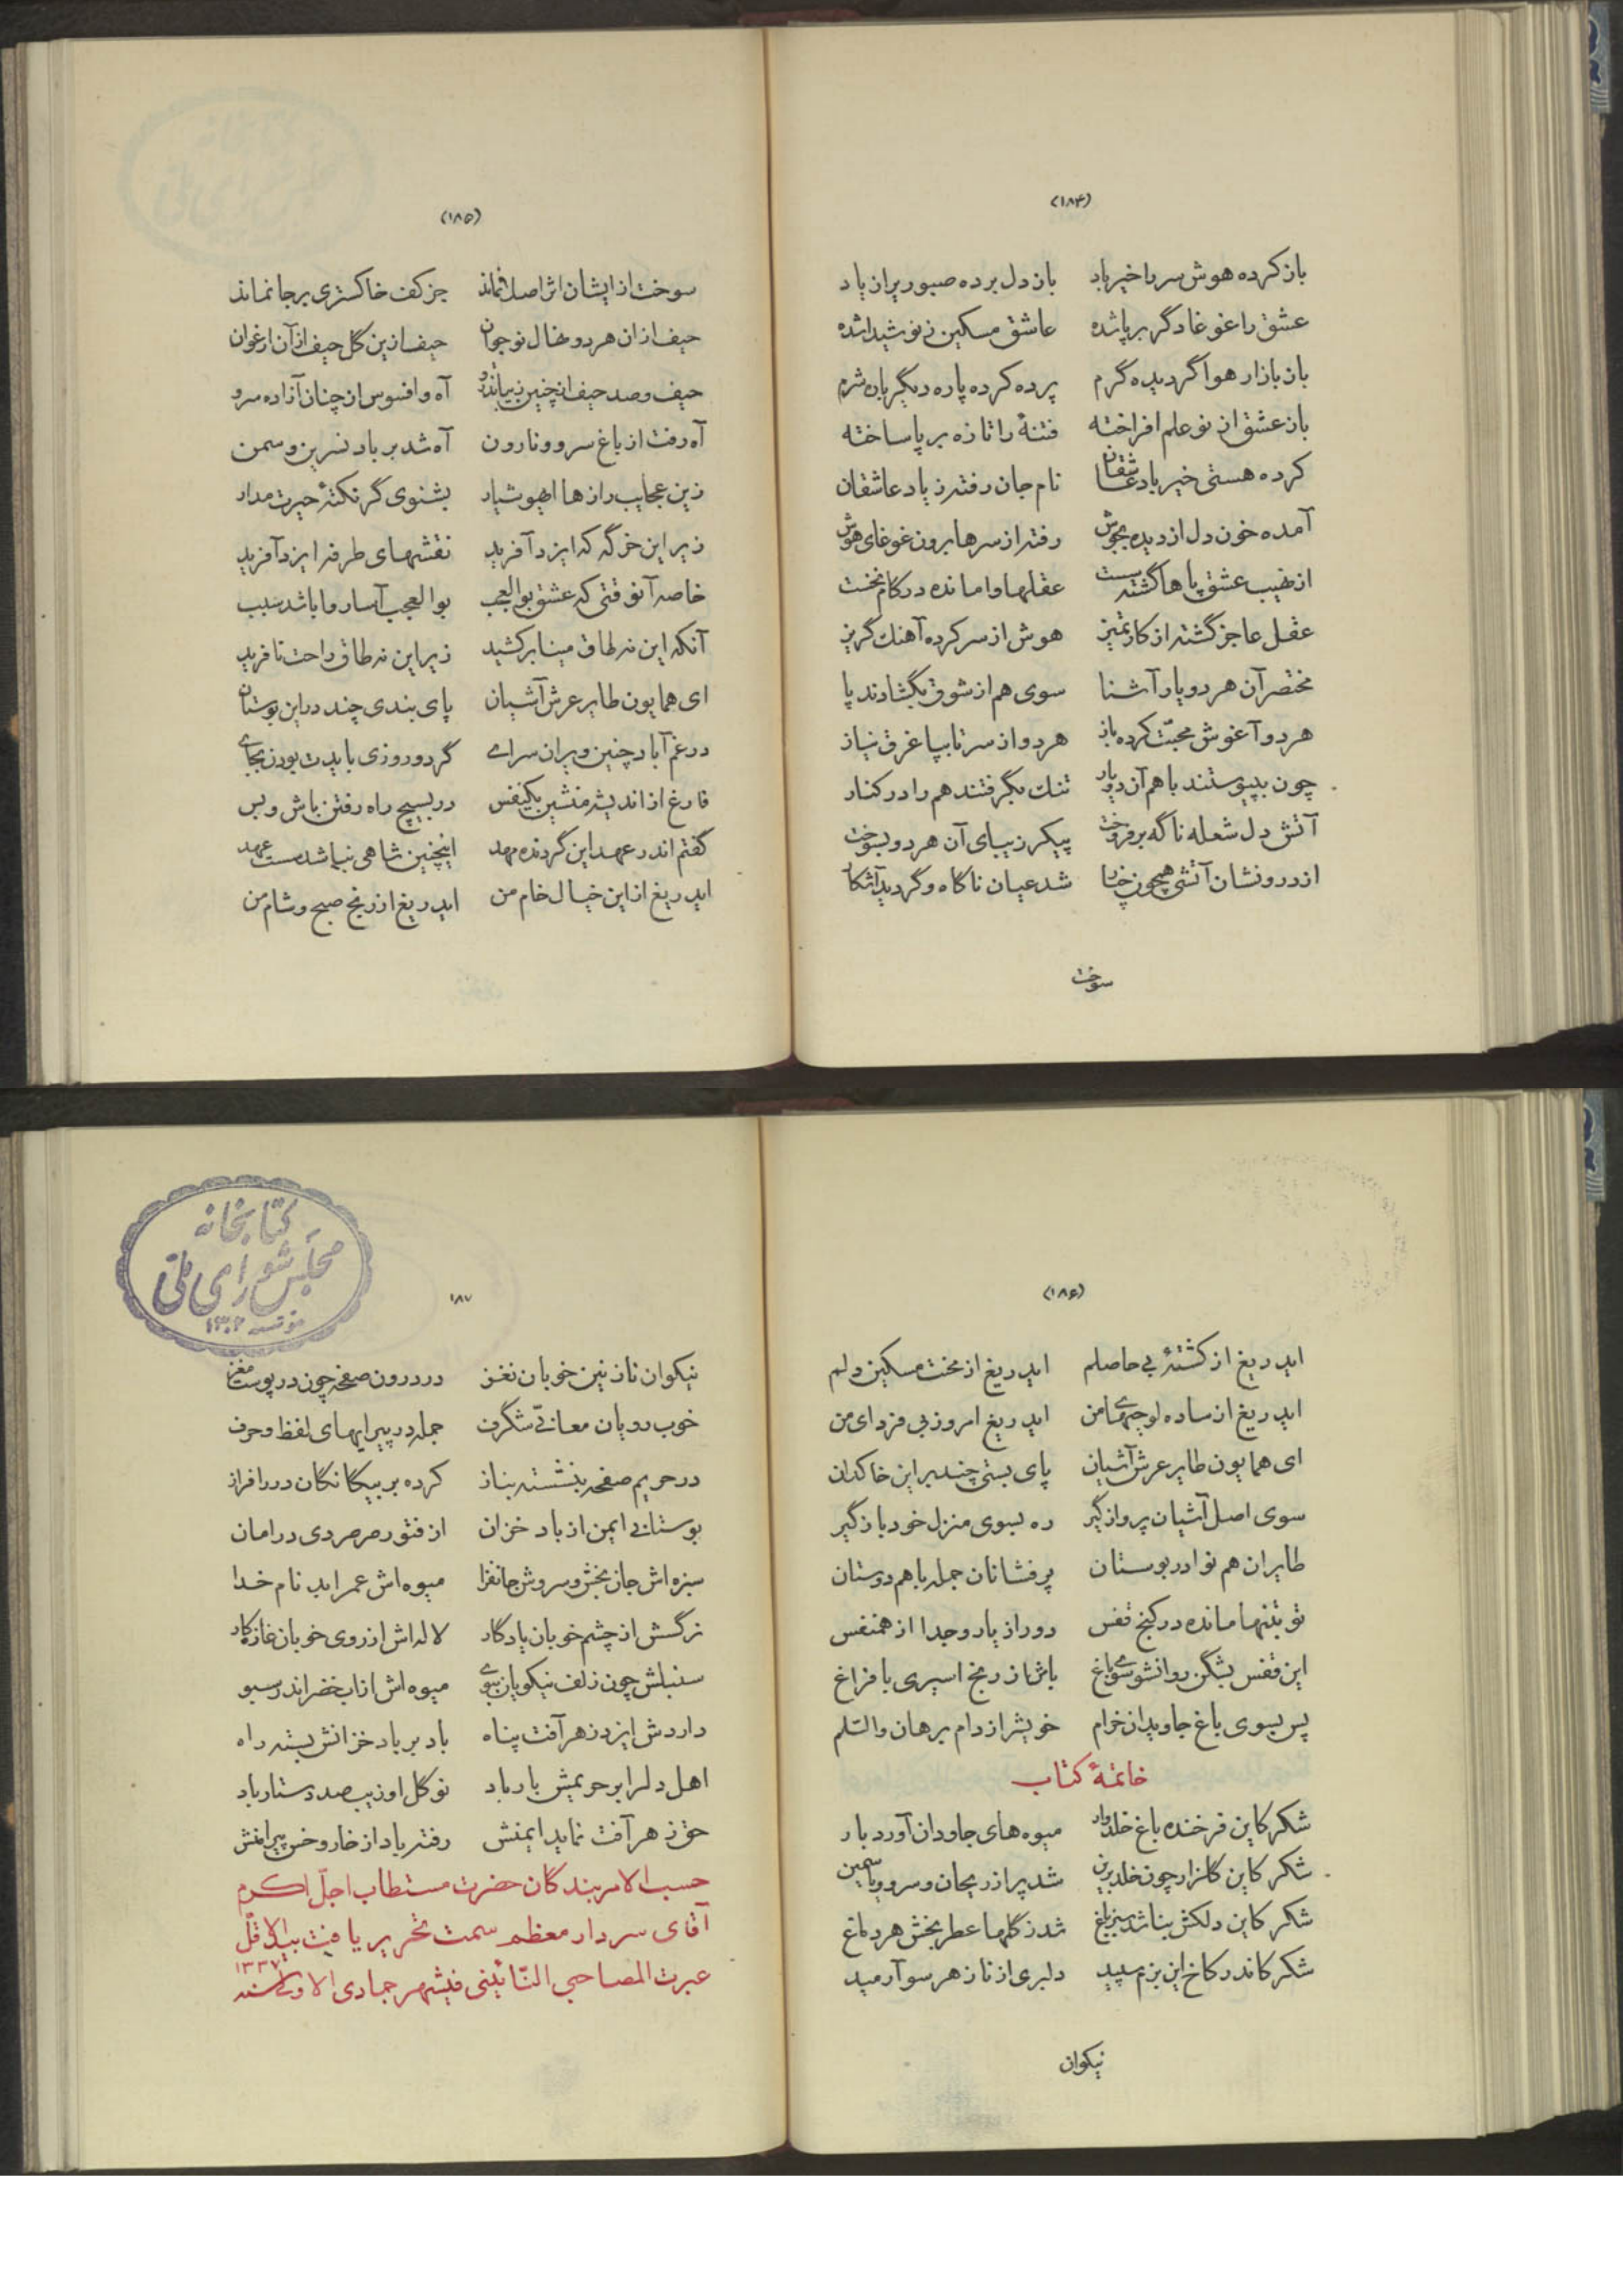 (۱۸۴)
باز کرده هوش سر را خیرباد باز دل برده صبوری را ز یاد
عشق را غوغا دگر برپا شده عاشق مسکین ز نو شیدا شده
باز بازار هوا گردیده گرم پرده کرده پاره دیگر باره شرم
باز عشق از نو علم افراخته فتنهٔ را تازه برپا ساخته
کرده هستی خیرباد عاشقان نام جان رفته ز یاد عاشقان
آمده خون دل از دیده بجوش رفته از سرها برون غوغای هوش
از نهیب عشق پاها گشته سست عقلها وامانده در کام نخست
عقل عاجز گشته از کار تمیز هوش از سر کرده آهنک گریز
مختصر آن هر دو یار آشنا سوی هم از شوق بگشادند پا
هر دو آغوش محبّت کرده باز هر دو از سر تا بپا غرق نیاز
چون بپیوستند با هم آن دو یار تنک بگرفتند هم را در کنار
آتش دل شعله ناگه برفروخت پیکر زیبای آن هر دو بسوخت
از درونشان آتشی همچون خیار شد عیان ناگاه و گردید آشکار
سوخت
(۱۸۵)
سوخت از ایشان اثر اصلا نماند جز کف خاکستری برجا نماند
حیف از ان هر دو نهال نوجوان حیف ازین گل حیف از آن ارغوان
حیف و صد حیف از چنین زیبا تذرو آه و افسوس از چنان آزاده سرو
آه رفت از باغ سرو و نارون آه شد بر باد نسرین و سمن
زین عجایب رازها ایهوشیار بشنوی گر نکتهٔ حیرت مدار
زیر این خرگه که ایزد آفرید نقشهای طرفه ایزد آفرید
خاصه آنوقتی که عشق بوالعجب بوالعجب آسار ما باشد سبب
آنکه این نه طاق مینا برکشید زیر این نه طاق راحت نافرید
ای همایون طایر عرش آشیان پای بندی چند در این بوستان
در غم آباد چنین ویران سرای گر دو روزی بایدت بودن بجای
فارغ از اندیشه منشین یکنفس در بسیچ راه رفتن باش و بس
گفتم اندر عهد این گردنده مهد اینچنین شاهی نباشد سست عهد
ایدریغ از این خیال خام من ایدریغ از رنج صبح و شام من
(۱۸۶)
ایدریغ از کشتهٔ بی حاصلم ایدریغ از بخت مسکین دلم
ایدریغ از ساده لوحیهای من ایدریغ امروز بی فردای من
ای همایون طایر عرش آشیان پای بستی چند بر این خاکدان
سوی اصل آشیان پرواز گیر ره بسوی منزل خود باز گیر
طایران هم نوا در بوستان پرفشانان جمله با هم دوستان
تو بتنها مانده در کنج قفس دور از یار و جدا از همنفس
این قفس بشکن روانشو سوی باغ باش از رنج اسیری با فراغ
پس بسوی باغ جاویدان خرام خویش را ز دام برهان والسّلم
خاتمهٔ کتاب
شکر کاین فرخنده باغ خلد وار میوه های جاودان آورد بار
شکر کاین گلزار چون خلد برین شد پر از ریحان و سرو و یاسمین
شکر کاین دلکش بنا شد سبز باغ شد ز گلها عطر بخش هر دماغ
شکر کاندر کاخ این بزم سپید دلبری از ناز هر سو آرمید
نیکوان
۱۸۷
کتابخانه
مجلس شورای ملی
مؤسسه ۱۳۰۲
نیکوان نازنین خوبان نغز در درون صفحه چون در پوست مغز
خوب رویان معانیّ شگرف جمله در پیرایهای لفظ و حرف
در حریم صفحه بنشسته بناز کرده بر بیگانگان در را فراز
بوستانی ایمن از باد خزان از فتور صرصر دی در امان
سبزه اش جان بخش و سروش جانفزا میوه اش عمر ابد نام خدا
نرگسش از چشم خوبان یادگار لاله اش از روی خوبان غازه کار
سنبلش چون زلف نیکویان ببوی میوه اش از اب خضر اندر سبو
داردش ایزد ز هر آفت پناه باد بر باد خزانش بسته راه
اهل دلرا بر حریمش بار باد نو گل او زیب صد دستار باد
حق ز هر آفت نماید ایمنش رفته باد از خار و خس پیرامنش
حسب الامر بندگان حضرت مستطاب اجلّ اکرم
آقای سردار معظم سمت تحریر یافت بید الاقلّ
عبرت المصاحبی النّائینی فیشهر جمادی الاولی سنه ۱۳۳۷